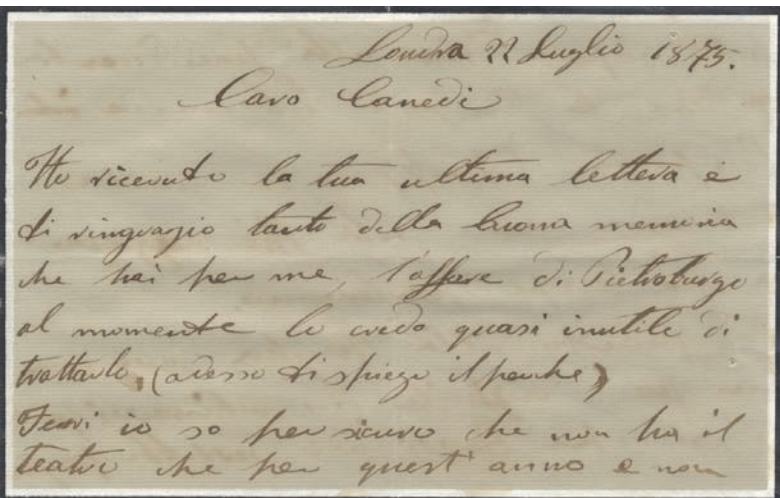 Londra 22 Luglio 1875.
Caro Canedi
Ho ricevuto la tua ultima lettera e
ti ringrazio tanto della buona memoria
che hai per me, l'affare di Pietroburgo
al momento lo credo quasi inutile di
trattarlo, (adesso ti spiego il perche)
Ferri io so per sicuro che non ha il
teatro che per quest' anno e non